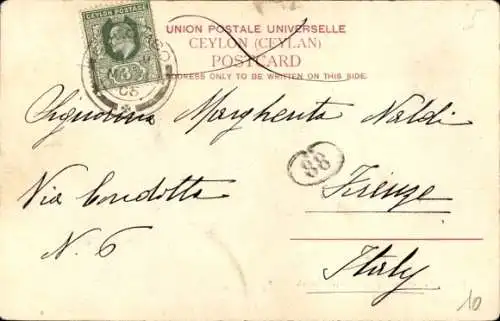 CEYLON POSTAGE
UNION POSTALE UNIVERSELLE
CEYLON (CEYLAN)
POSTCARD
ADDRESS ONLY TO BE WRITTEN ON THIS SIDE.
Signorina Margherita Naldi
88
Via Condotta
Firenze
N. 6
Italy
10